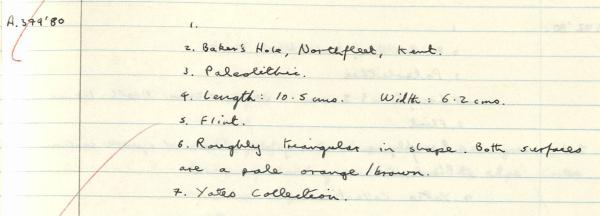 A.379'80
1.
2. Baker's Hole, Northfleet, Kent.
3. Paleolithic.
4. Length: 10.5 cms. Width: 6.2 cms.
5. Flint.
6. Roughly triangular in shape. Both surfaces
are a pale orange/brown.
7. Yates Collection.